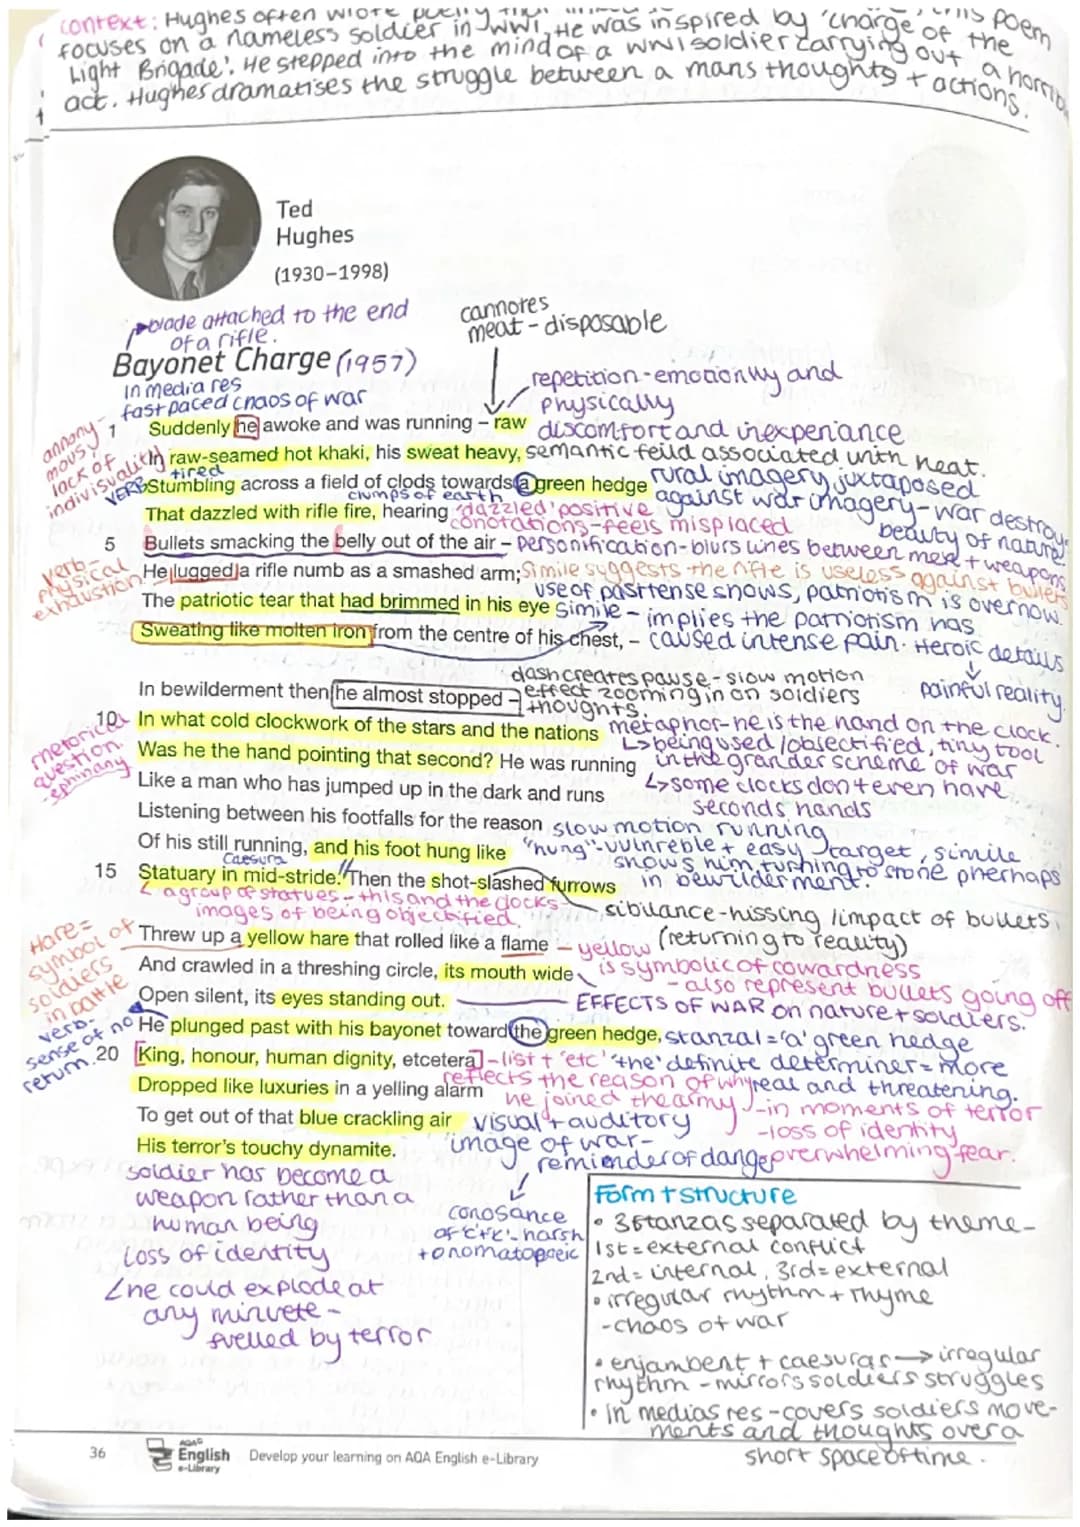 context: Hughes often wrote poetry this poem
focuses on a nameless soldier in WW1, He was inspired by 'charge of the
Light Brigade'. He stepped into the mind of a WW1 soldier carrying out a horrib
act. Hughes dramatises the struggle between a mans thoughts + actions.
Ted
Hughes
(1930–1998)
blade attached to the end
of a rifle.
cannotes
meat - disposable
Bayonet Charge (1957)
In media res
fast paced chaos of war
repetition - emotionally and
physically
discomfort and inexperiance
annony-
mous
lack of
indivisuality
1 Suddenly he awoke and was running – raw
In raw-seamed hot khaki, his sweat heavy, semantic feild associated with heat.
VERB
tired
Stumbling across a field of clods towards a green hedge
rural imagery juxtaposed
against war imagery - war destroys
beauty of nature
clumps of earth
That dazzled with rifle fire, hearing
'dazzled' positive
conotations - feels misplaced
5 Bullets smacking the belly out of the air – personification - blurs lines between men + weapons
verb -
physical
exhaustion
He lugged a rifle numb as a smashed arm; Simile suggests the rifle is useless against bullets
use of past tense shows, patriotism is over now.
The patriotic tear that had brimmed in his eye
simile - implies the patriotism has
caused intense pain. Heroic details
painful reality.
Sweating like molten iron from the centre of his chest, –
dash creates pause - slow motion
effect zooming in on soldiers
thoughts.
In bewilderment then he almost stopped –
10 In what cold clockwork of the stars and the nations
metaphor - he is the hand on the clock.
being used / objectified, tiny tool
in the grander scheme of war
some clocks don't even have
seconds hands
rhetorical
question.
Was he the hand pointing that second? He was running
Like a man who has jumped up in the dark and runs
Listening between his footfalls for the reason
slow motion running
Of his still running, and his foot hung like
"hung" - vulnreble + easy target, simile
shows him turning to stone pherhaps
in bewilderment.
Caesura
15 Statuary in mid-stride. Then the shot-slashed furrows
a group of statues - this and the clocks
images of being objectified
sibilance - hissing / impact of bullets,
(returning to reality)
Hare =
symbol of
soldiers
in battle
Threw up a yellow hare that rolled like a flame
yellow
is symbolic of cowardness
- also represent bullets going off
And crawled in a threshing circle, its mouth wide
Open silent, its eyes standing out.
EFFECTS OF WAR on nature + soldiers.
verb -
sense of no
return.
He plunged past with his bayonet toward the green hedge,
stanza 1 = 'a' green hedge
'the' definite determiner = more
real and threatening.
20 King, honour, human dignity, etcetera
- list + 'etc'
reflects the reason of why
he joined the army
- in moments of terror
- loss of identity
overwhelming fear.
Dropped like luxuries in a yelling alarm
To get out of that blue crackling air
visual + auditory
image of war -
remienderof danger
His terror's touchy dynamite.
soldier has become a
weapon rather than a
human being
Loss of identity
he could explode at
any minuete -
fuelled by terror
conosance
of harsh
+ onomatopoeic
Form + structure
• 3 stanzas separated by theme -
1st = external conflict
2nd = internal, 3rd = external
• irregular rhythm + rhyme
- chaos of war
• enjambent + caesuras → irregular
rhythm - mirrors soldiers struggles
• In medias res - covers soldiers move-
ments and thoughts over a
short space of time.
36
AQA
English
e-Library
Develop your learning on AQA English e-Library